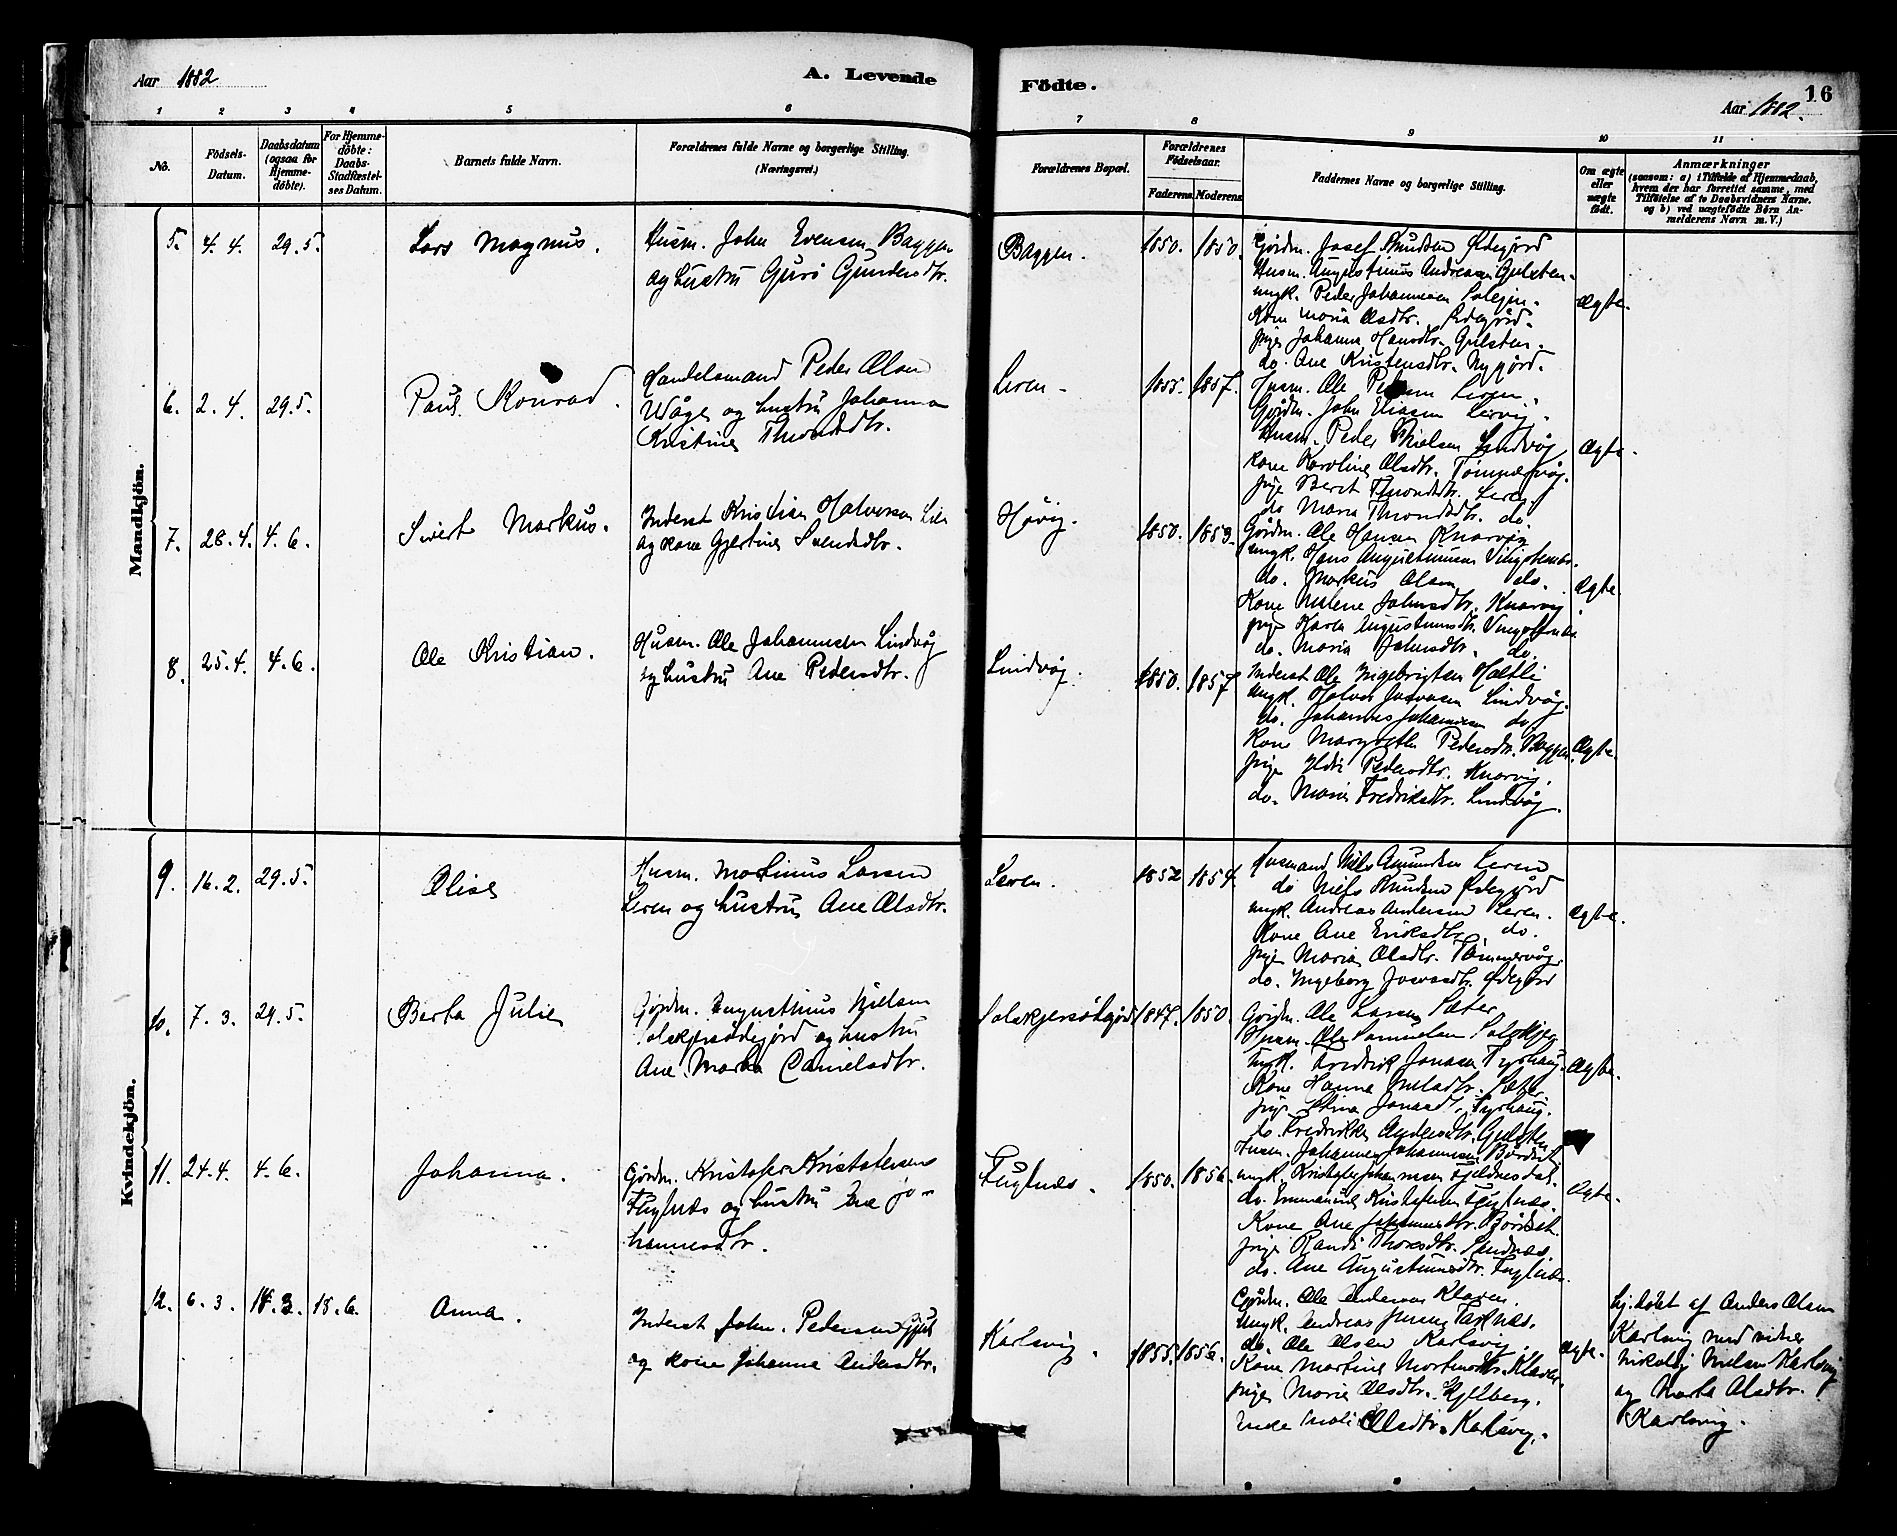 Aar 1882
A. Levende
Födte.
16
Aar 1882.
1 2 3 4 5 6 7 8 9 10 11
No.
Födsels-
Datum.
Daabsdatum
(ogsaa for
Hjemme-
döbte).
For Hjemme-
döbte:
Daabs-
Stadfæstel-
ses Datum.
Barnets fulde Navn.
Forældrenes fulde Navne og borgerlige Stilling.
(Næringsvei.)
Forældrenes Bopæl.
Forældrenes
Födselsaar.
Faderens. Moderens.
Faddernes Navne og borgerlige Stilling.
Om ægte
eller
uægte
födt.
Anmærkninger
(saasom: a) i Tilfælde af Hjemmedaab,
hvem der har forrettet samme, med
Tilföielse af to Daabsvidners Navne,
og b) ved uægtefödte Börn An-
melderens Navn m. V.)
Mandkjön.
5. 4.4. 29.5.
Lars Magnus.
Husm. John Evensen Baggen
og hustru Guri Gundersdtr.
Baggen.
1850. 1850.
Gårdm. Josef Knudsen Ødegård
Husm. Augustinus Andreasen Gulsten.
ungk. Peder Johannesen
Kone Maria Olsdtr. Ødegård.
pige Johanna Hansdtr. Gulsten.
do. Ane Kristensdtr. Nygård.
Ægte.
6. 2.4. 29.5.
Paul Konrad.
Handelsmand Peder Olsen
Våge og hustru Johanna
Kristine Throndsdtr.
Leren.
1855. 1857.
Husm. Ole Leren.
Gårdm. John Lervig.
Husm. Peder Nielsen Lindvåg
kone Karoline Olsdtr. Tømmervåg.
pige Beret Throndsdtr. Leren.
do Maria Throndsdtr. do.
Ægte.
7. 28.4. 4.6.
Sivert Markus.
Inderst Kristian Halvorsen
og kone Gjertine Svendsdtr.
Høvig.
1850. 1853.
Gårdm. Ole Hansen Knarvig
ungk. Hans Augustinusen
do. Markus Olsen do.
Kone Johnsdtr. Knarvig
pige Maren Augustinusdtr.
do. Maria Johnsdtr. do.
Ægte.
8. 25.4. 4.6.
Ole Kristian.
Husm. Ole Johannesen Lindvåg
og hustru Ane Pedersdtr.
Lindvåg.
1850. 1857
Inderst Ole Ingebrigtsen Holtli
ungk. Halvor Lindvåg.
do. Johannes Johannesen do
Kone Margrethe Pedersdtr. Baggen.
pige Pedersdtr. Knarvig.
do. Maria Fredriksdtr. Lindvåg.
Ægte.
Kvindekjön.
9. 16.2. 29.5.
Olise
Husm. Martinus Larsen
Leren og hustru Ane Olsdtr.
Leren.
1852 1854.
Husmand Niels Amundsen Leren
do Niels Knudsen Ødegård
ungk. Andreas Andersen Leren.
Kone Ane Eriksdtr. do.
pige Maria Olsdtr. Tømmervåg.
do. Ingeborg Ødegård
Ægte.
10. 7.3. 29.5.
Berta Julie
Gårdm. Augustinus Nielsen
og hustru
Ane Marta Danielsdtr.
1847. 1850.
Gårdm. Ole Larsen Sæter
Husm. Ole Samuelsen
Ungk. Fredrik Jonasen Tyrhaug.
Kone Hanna Nielsdtr. Sæter.
pige Jonasdtr. Tyrhaug.
do. Fredrikke Andersdtr. Gulsten
Ægte.
11. 24.4. 4.6.
Johanna.
Gårdm. Kristofer Kristofersen
Fuglnes og hustru Ane Jo-
hannesdtr.
Fuglnæs.
1850. 1856.
Husm. Johannes Johannesen Bårdset
ungk. Kristofer Johannesen
do. Emmanuel Kristofersen Fuglnæs.
Kone Ane Johannesdtr. Bårdset.
pige Randi Sandnæs.
do. Ane Augustinusdtr. Fuglnæs.
Ægte.
12. 6.3. 18.6.
Anna.
Inderst John Pedersen
og kone Johanna Andersdtr.
Karlsvig.
1855. 1856.
Gårdm. Ole Andersen
Ungk. Andreas
do. Ole Olsen Karlsvig
Kone Martine Mortensdtr.
pige Marie Olsdtr.
Olsdtr. Karlsvig.
Ægte.
hj. døbt af Anders Olsen
Karlsvig med vidner
Nikolaj Nielsen Karlsvig
og Marta Olsdtr.
Karlsvig.